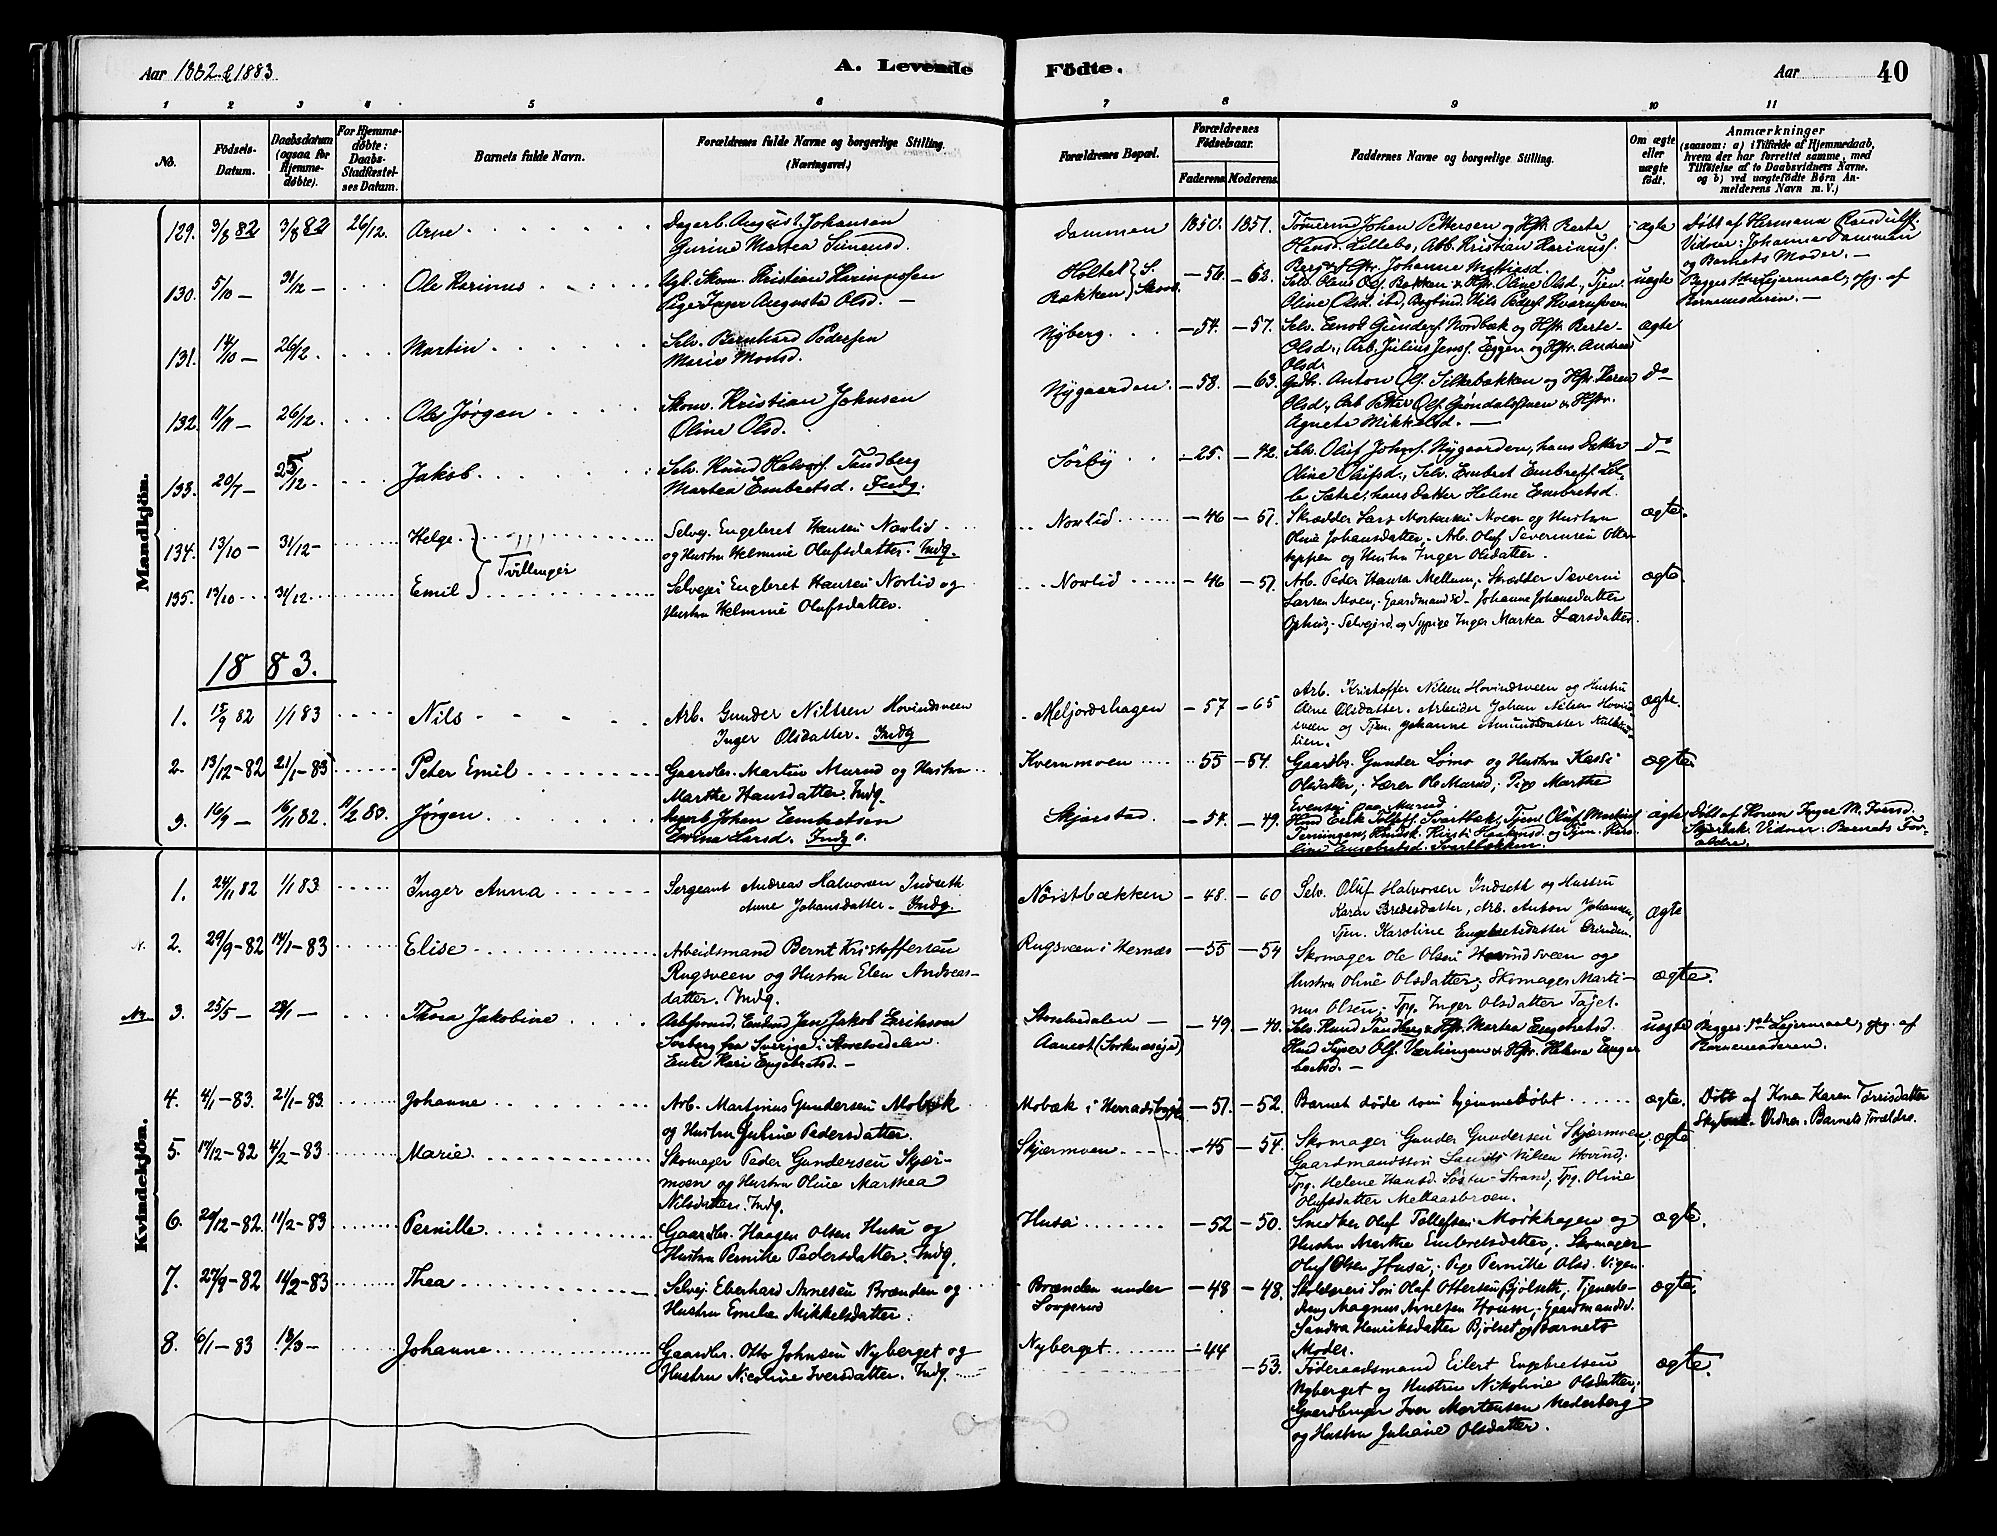 Aar 1882 & 1883
A. Levende
Födte.
Aar
40
1 2 3 4 5 6 7 8 9 10 11
No.
Födsels-
Datum.
Daabsdatum
(ogsaa for
Hjemme-
döbte).
For Hjemme-
döbte:
Daabs-
Stadfæstel-
ses Datum.
Barnets fulde Navn.
Forældrenes fulde Navne og borgerlige Stilling.
(Næringsvei.)
Forældrenes Bopæl.
Forældrenes
Födselsaar.
Faderens.
Moderens.
Faddernes Navne og borgerlige Stilling.
Om ægte
eller
uægte
født.
Anmærkninger
(saasom: a) i Tilfælde af Hjemmedaab,
hvem der har forrettet samme, med
Tilföielse af to Daabsvidners Navne.
og b) ved uægtefödte Börn An-
melderens Navn m. V.)
Mandkjön.
129. 3/8 82 3/8 82 26/12. Arne
Dagarb. August Johansen
Gurine Martea Simensd.
Dammen 1850. 1851.
Tømmermd Johan Pettersen og Hstr. Berte
Lillebo, Arb. Kristian
Berg & Hstr. Johanne
ægte
Døbt af Hermana
Vidner: Johanne Dammen
og Barnets Moder.
130. 5/10 — 31/12 — Ole Karinus
Ugk. Skom. Kristian
Pige Inger Augusta Olsd. —
Holtet } S.
Bakken } Skovs
— 56. — 62.
Selv. Olaus Ols. Bakken & Hstr. Oline Olsd., Tjen.
Oline Olsd. ibd,
uægte
Begges 1ste Leiermaal, opg. af
Barnemoderen. —
131. 14/10 — 26/12. Martin
Selv. Bernhard Pedersen
Marie Monsd.
Nyberg. — 54. — 57.
Selv. Enod Gunders. Nordbæk og Hstr. Berte
Olsd., Arb. Julius Jens. Eggen og Hstr. Andrea
Olsd.
ægte
132. 11/11 — 26/12. Ole Jørgen
Skom. Kristian Johnsen
Oline Olsd.
Nygaarden. — 58. — 63.
Gdbr. Anton Ols. Silkebækken og Hstr. Karen
Olsd., Arb. Petter Ols. Grøndalsstuen & Hstr.
Agnete Mikkelsd. —
do
133. 20/7 — 25/12 — Jakob
Selv. Knud Halvors. Tandberg
Martea Embretsd. Indg.
Sørby — 25. — 42.
Selv. Oluf Johns. Nygaarden, hans Datter
Oline Olufsd., Selv. Embret Embrets. Lil-
le Sætre, hans Datter Helene Embretsd.
do
134. 13/10 — 31/12 — Helge
Selvej. Engebret Hansen Norlid
og Hustru Helmine Olufsdatter. Indg.
Norlid — 46 — 57.
Skrædder Lars Mortensen Moen og Hustru
Oline Johansdatter, Arb. Oluf Severinsen Otte-
 og Hustru Inger Olsdatter.
ægte.
Tvillinger
135. 13/10 31/12 Emil
Selvejer Engebret Hansen Norlid og
Hustru Helmine Olufsdatter.
Norlid — 46 — 57.
Arb. Peder Hansen Mellum, Skrædder Severin
Larsen Moen, Gaardmandsd. Johanne Johansdatter
Ophus, Selvejerd. og Sypige Inger Marthea Larsdatter.
ægte.
1883.
1. 15/9 82 1/1 83 Nils
Arb. Gunder Nilsen Hovindsveen
Inger Olsdatter. Indg
Meljordshagen — 57 — 65
Arb. Kristoffer Nilsen Hovindsveen og Hustru
Olsdatter. Arbeider Johan Nilsen Hovind-
sveen og Tjen. Johanne Amundsdatter
lien.
ægte.
2. 13/12 — 82 21/1 — 83 Peter Emil
Gaardbr. Martin Murud og Hustru
Marthe Hansdatter. Indg.
Kvernmoen — 55 — 54.
Gaardbr. Gunder Lømo og Hustru Kasse
Olsdatter, Lærer Ole Murud, Pige Marthe
Evensen Murud.
ægte
3. 16/9 — 16/11 82. 11/2 83. Jørgen
Johan Embretsen
Larsd. Indg.
Skjærstad — 54. — 49.
Erik Tollefs. Svartbæk, Tjen. Oluf
Terningen, Kirsti Haakensd. og Tjen.
Embretsd. Svartbækken.
ægte
Døbt af Konen Inger M.
 Vidner: Barnets For-
ældre.
Kvindekjön.
1. 24/11 82 1/1 83. Inger Anna
Sergeant Andreas Halvorsen Indseth
Anne Johansdatter. Indg.
Nöistbækken — 48. — 60
Selv. Oluf Halvorsen Indseth og Hustru
Karen Bredesdatter, Arb. Anton Johansen,
Tjen. Karoline Engebretsdatter Grinden.
ægte
N. 2. 29/9 — 82 14/1 — 83 Elise
Arbeidsmand Bernt Kristoffersen
Rugsveen og Hustru Elen Andreas-
datter. Indg.
Rugsveen i Hernæs — 55 — 54
Skomager Ole Olsen Hovindsveen og
Hustru Oline Olsdatter; Skomager Marti-
nus Olsen; Tpg. Inger Olsdatter
ægte.
3. 25/5 — 28/1 — Thora Jakobine
 Jan Jakob Erikson
 fra Sverige i Storelvedalen.
Enke Kari Engebretsd. —
Storelvedalen —
Aamot
— 49 — 40.
Selv. Knud Tandberg & Hstr. Martea Engebretsd.
 Ols. Værlingen & Hstr. Helene Enge-
bretsd. —
uægte
Begges 1ste Leiermaal, opg. af
Barnemoderen.
4. 4/1 — 83. 21/1 — 83. Johanne
Arb. Martinus Gundersen Mobæk
og Hustru Juline Pedersdatter.
Mobæk i Hernadsbygd — 51 — 52.
Barnet døde som hjemmedøbt
ægte.
Døbt af Konen Karen Törrisdatter
 Vidner. Barnets Forældre.
5. 17/12 — 82 4/2 — 83 Marie
Skomager Peder Gundersen Skjær-
moen og Hustru Oline Marthea
Nilsdatter. Indg.
Skjærmoen — 45 — 54.
Skomager Gunder Gundersen Skjærmoen,
Gaardmandssön Nilsen Hovind,
Tpg. Helene Hansd. Søstu-Strand, Tpg. Oline
Olufsdatter Meltaasbroen.
ægte
6. 20/12 — 82 11/2 — 83 Pernille
Gaardbr. Haagen Olsen Husa og
Hustru Pernille Pedersdatter. Indg.
Husa — 52 — 50.
Snedker Oluf Tollefsen Mørkhagen og
Hustru Marthe Embretsdatter, Skomager
Oluf Olsen Husa, Pige Pernille Olsd. Vigen
ægte.
7. 27/9 — 82 14/2 — 83 Thea
Selvej. Eberhard Arnesen Brænden og
Hustru Emilie Mikkelsdatter.
Brænden under
Loperud
— 48 — 48.
Skolelærers Sön Oluf Ottersen Bjölseth, Tjeneste-
dreng Magnus Arnesen Houm, Gaardmandsd.
Sandra Henriksdatter Bjölset og Barnets
Moder.
ægte.
8. 6/1 — 83 18/3 — Johanne
Gaardbr. Otto Johnsen Nyberget og
Hustru Nicoline Iversdatter. Indg.
Nyberget — 44 — 53.
Föderaadsmand Eilert Engebretsen
Nyberget og Hustru Nikoline Olsdatter,
Gaardbruger Iver Mortensen Nederberg
og Hustru Juliane Olsdatter.
ægte.